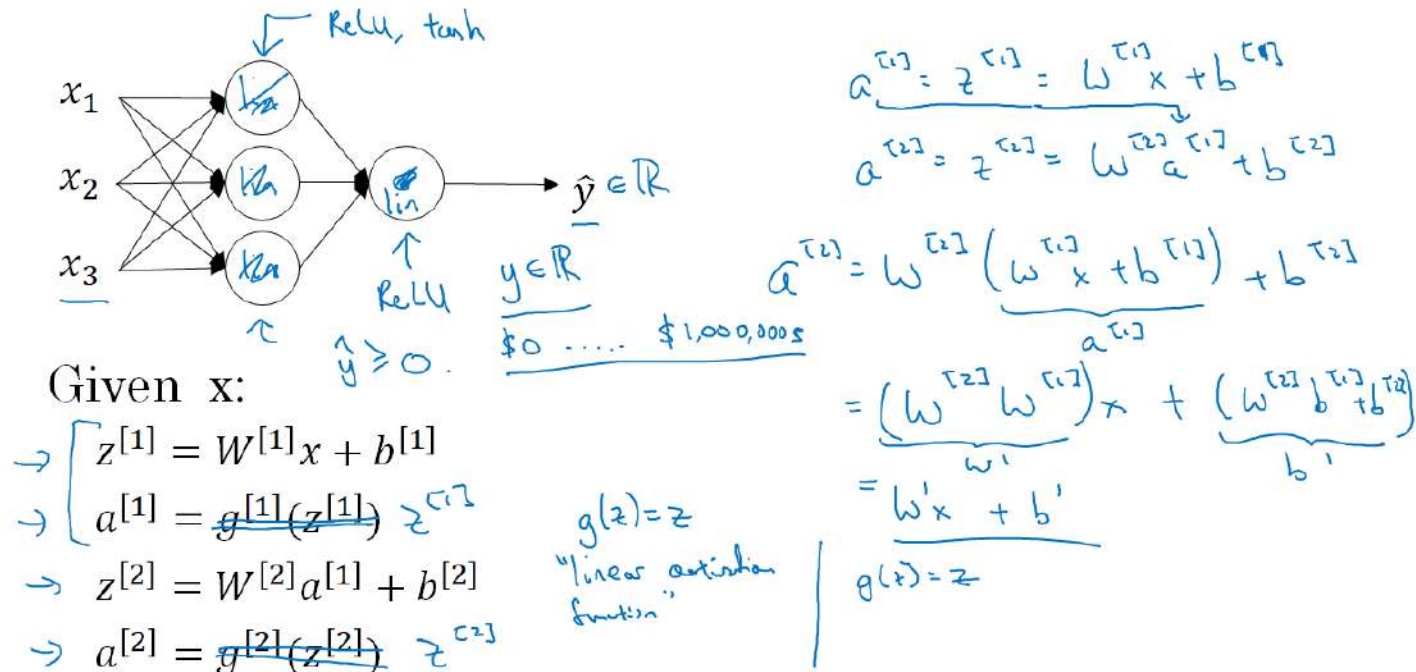 ReLU, tanh
x₁
x₂
x₃
lin
ŷ ∈ ℝ
ReLU
ŷ ≥ 0.
y ∈ ℝ
$0 ..... $1,000,000s
Given x:
→ z^[1] = W^[1]x + b^[1]
→ a^[1] = g^[1](z^[1]) z^[1]
→ z^[2] = W^[2]a^[1] + b^[2]
→ a^[2] = g^[2](z^[2]) z^[2]
g(z) = z
"linear activation
function"
a^[1] = z^[1] = W^[1] x + b^[1]
a^[2] = z^[2] = W^[2] a^[1] + b^[2]
a^[2] = W^[2] (W^[1] x + b^[1]) + b^[2]
a^[1]
= (W^[2] W^[1]) x + (W^[2] b^[1] + b^[2])
W' b'
= W'x + b'
g(z) = z